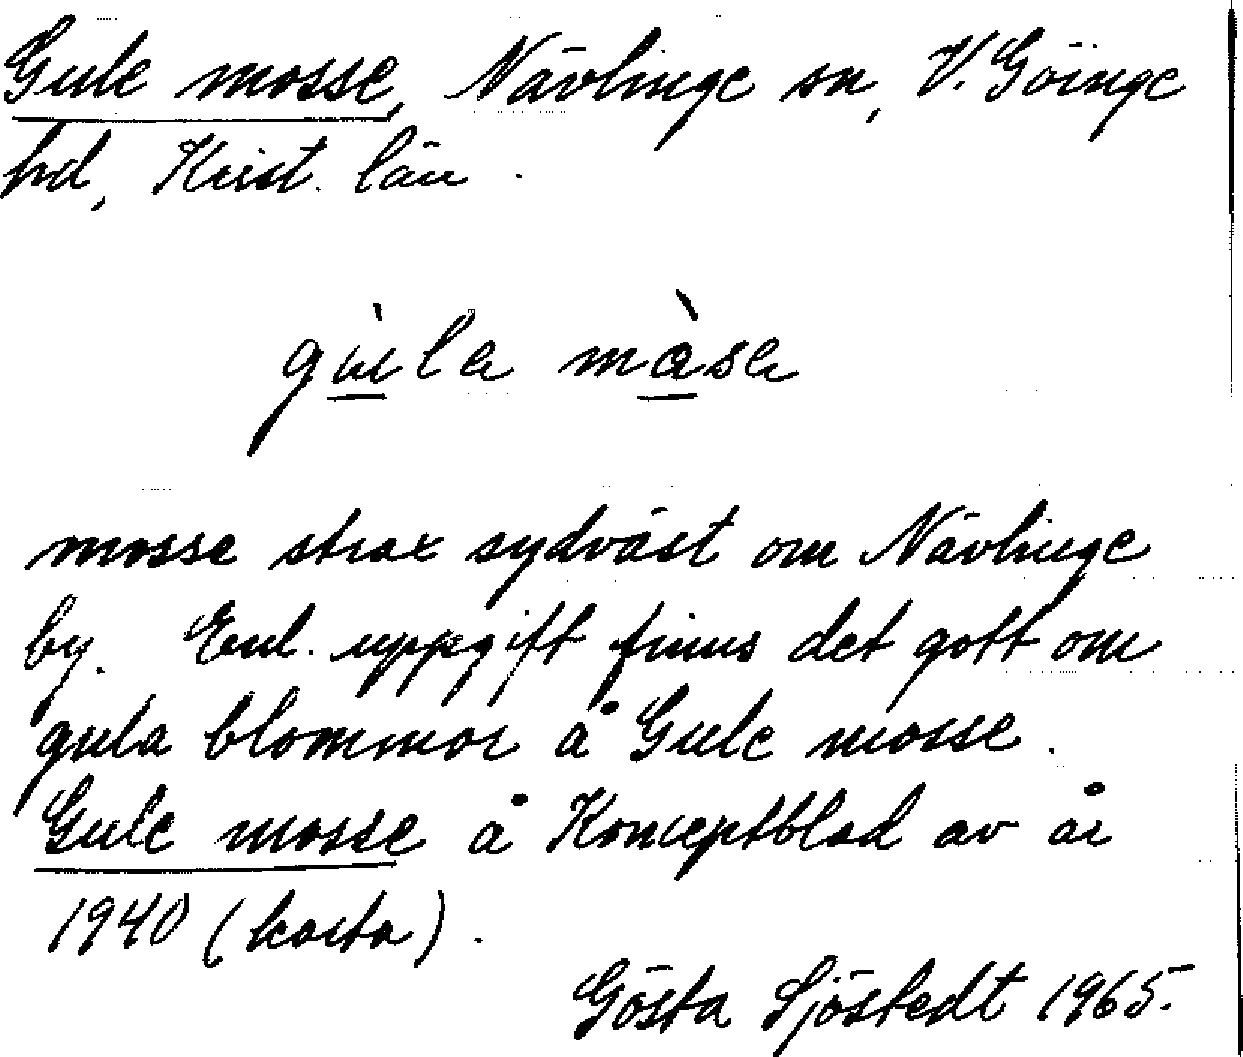 Gule mosse, Nävlinge sn, V. Göinge
hd, Krist. län.
gùla màsa
mosse strax sydväst om Nävlinge
by. Enl. uppgift finns det gott om
gula blommor å Gule mosse.
Gule mosse å Konceptblad av år
1940 (karta).
Gösta Sjöstedt 1965.